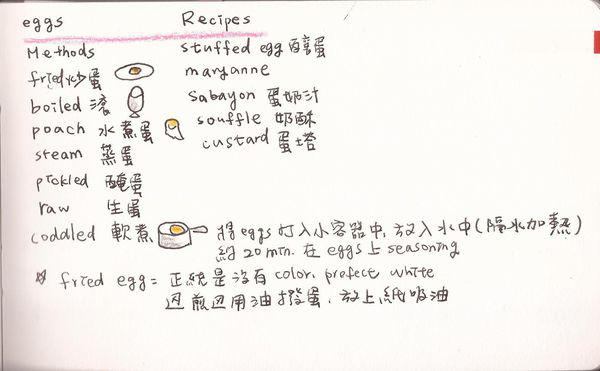 eggs
Methods
fried 炒蛋
boiled 滾
poach 水煮蛋
steam 蒸蛋
pickled 醃蛋
raw 生蛋
coddled 軟煮
Recipes
stuffed egg 釀蛋
maryanne
sabayon 蛋奶汁
souffle 奶酥
custard 蛋塔
將eggs 打入小容器中, 放入水中(隔水加熱)
約20min. 在 eggs 上 seasoning
☆ fried egg = 正統是沒有 color, prefect white
邊煎邊用油撥蛋, 放上紙吸油